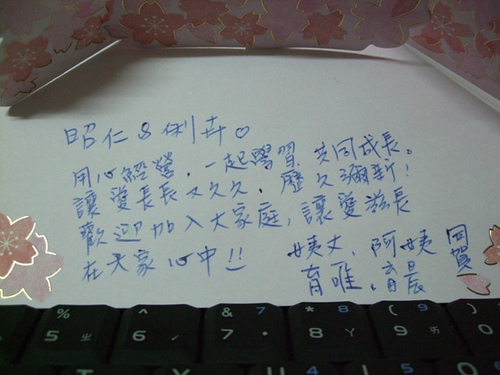 昭仁&俐卉♡
用心經營,一起學習,共同成長。
讓愛長長又久久,歷久彌新!
歡迎加入大家庭,讓愛滋長
在大家心中!!
姨丈,阿姨 同賀
育唯,育晨
% & * ( )
5 ㄓ 6 ˊ 7 ˙ 8 ㄚ 9 ㄞ
7 8 9